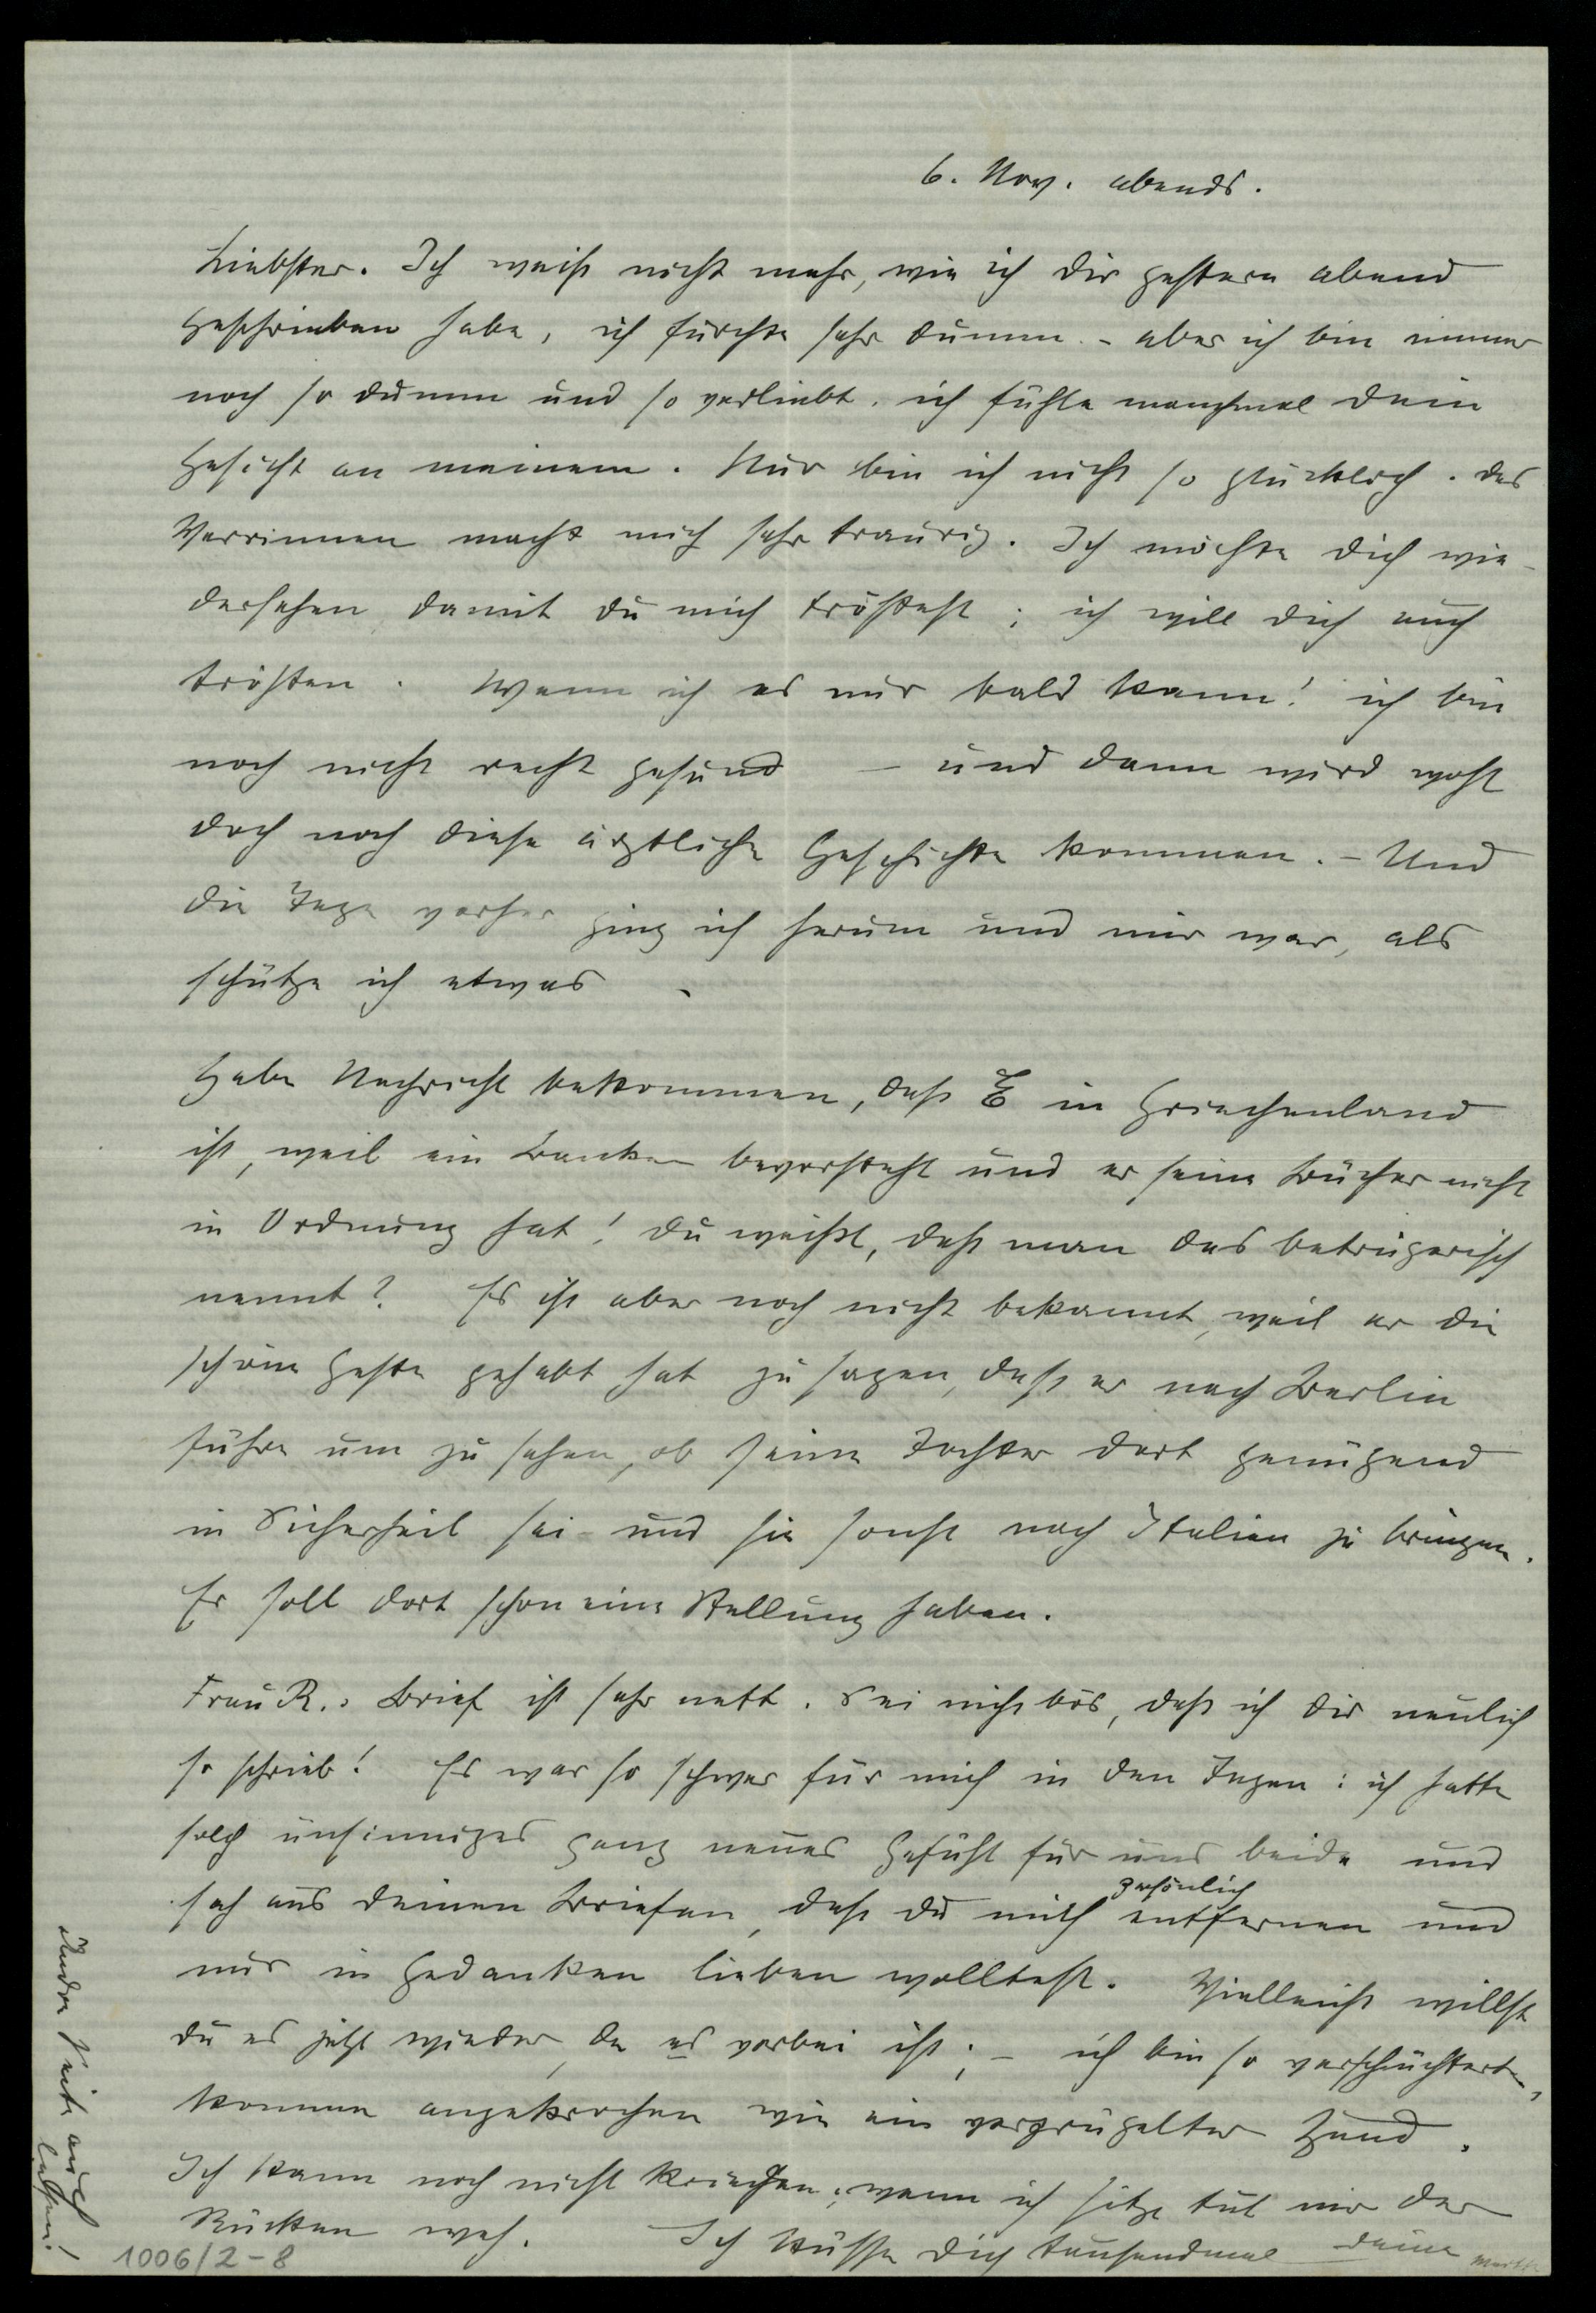 6. Nov. abends.
Liebster. Ich weiß nicht mehr, wie ich dir gestern abend
geschrieben habe, ich fürchte sehr dumm. – aber ich bin immer
noch so dumm und so verliebt. ich fühle manchmal dein
Gesicht an meinem. Nur bin ich nicht so glücklich. das
Verrinnen macht mich sehr traurig. Ich möchte dich wie-
dersehen damit du mich tröstest; ich will dich auch
trösten. Wenn ich es nur bald kann! ich bin
noch nicht recht gesund – und dann wird wohl
doch noch diese ärztliche Geschichte kommen. – Und
die Tage vorher ging ich herum und mir war, als
schütze ich etwas.
Habe Nachricht bekommen, daß E in Griechenland
ist, weil ein bevorsteht und er seine Bücher nicht
in Ordnung hat! du weißt, daß man das betrügerisch
nennt? Es ist aber noch nicht bekannt, weil er die
schöne Geste gehabt hat zu sagen, daß er nach Berlin
führe um zu sehen, ob seine Tochter dort genügend
in Sicherheit sei – und sie sonst nach Italien zu bringen.
Er soll dort schon eine Stellung haben.
Frau R.s Brief ist sehr nett. Sei nicht bös, daß ich dir neulich
so schrieb! Es war so schwer für mich in den Tagen: ich hatte
solch unsinniges ganz neues Gefühl für uns beide und
sah aus deinen Briefen, daß du mich persönlich entfernen und
nur in Gedanken lieben wolltest. Vielleicht willst
du es jetzt wieder, da es vorbei ist; – ich bin so verschüchtert,
komme angekrochen wie ein verprügelter Hund.
Ich kann noch nicht kriechen; wenn ich sitze tut mir der
Rücken weh. Ich küsse dich tausendmal deine Martha
Andre Seite auch
lesen!
1006/2-8